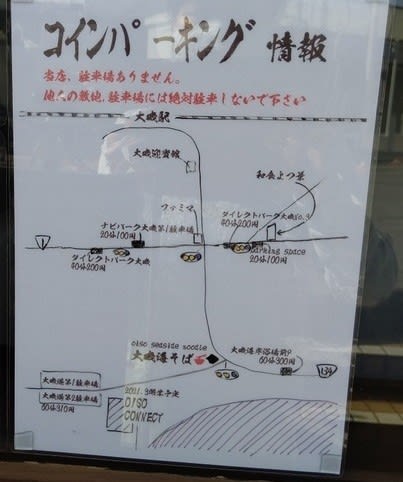 コインパーキング 情報
当店、駐車場ありません。
他人の敷地、駐車場には絶対駐車しないで下さい
大磯駅
大磯迎賓館
和食よつ葉
ファミマ
ダイレクトパーク大磯no.3
40分200円
ナビパーク大磯第1駐車場
20分100円
1
parking space
20分100円
ダイレクトパーク大磯
40分200円
oiso seaside soodle
大磯港そば
大磯港岸沿線前P
60分300円
134
大磯港第1駐車場
大磯港第2駐車場
60分310円
2021.3開業予定
OISO
CONNECT